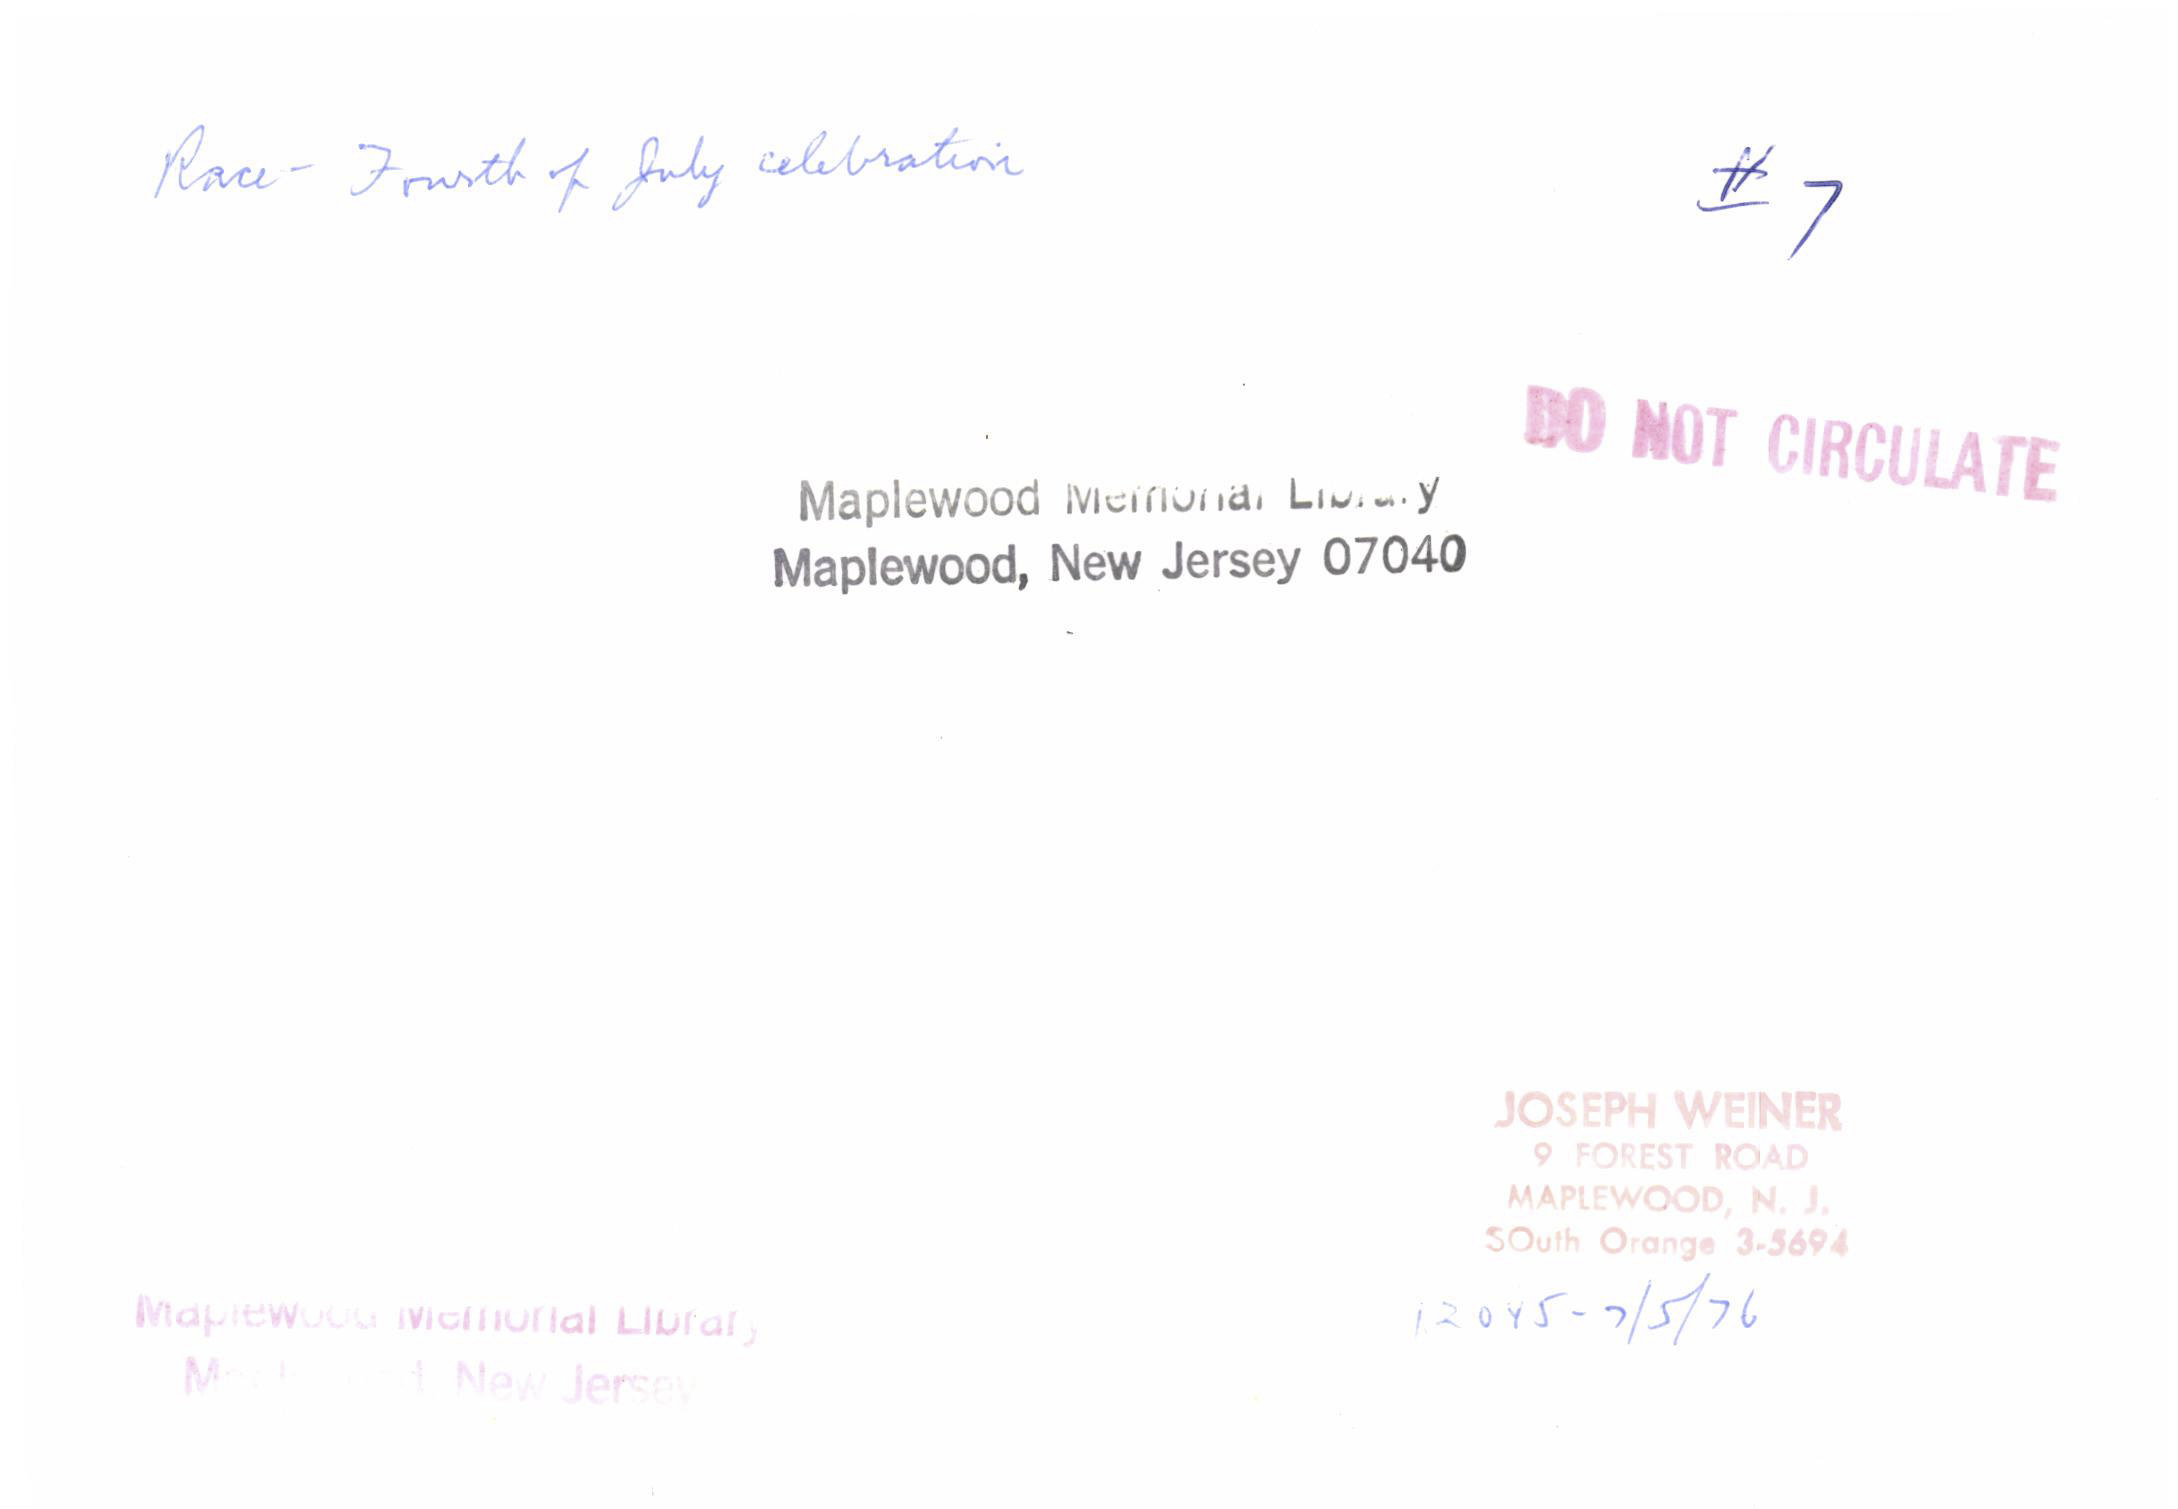 Race - Fourth of July celebration
# 7
DO NOT CIRCULATE
Maplewood Memorial Library
Maplewood, New Jersey 07040
JOSEPH WEINER
9 FOREST ROAD
MAPLEWOOD, N. J.
SOuth Orange 3-5694
12045-7/5/76
Maplewood Memorial Library
Maplewood, New Jersey